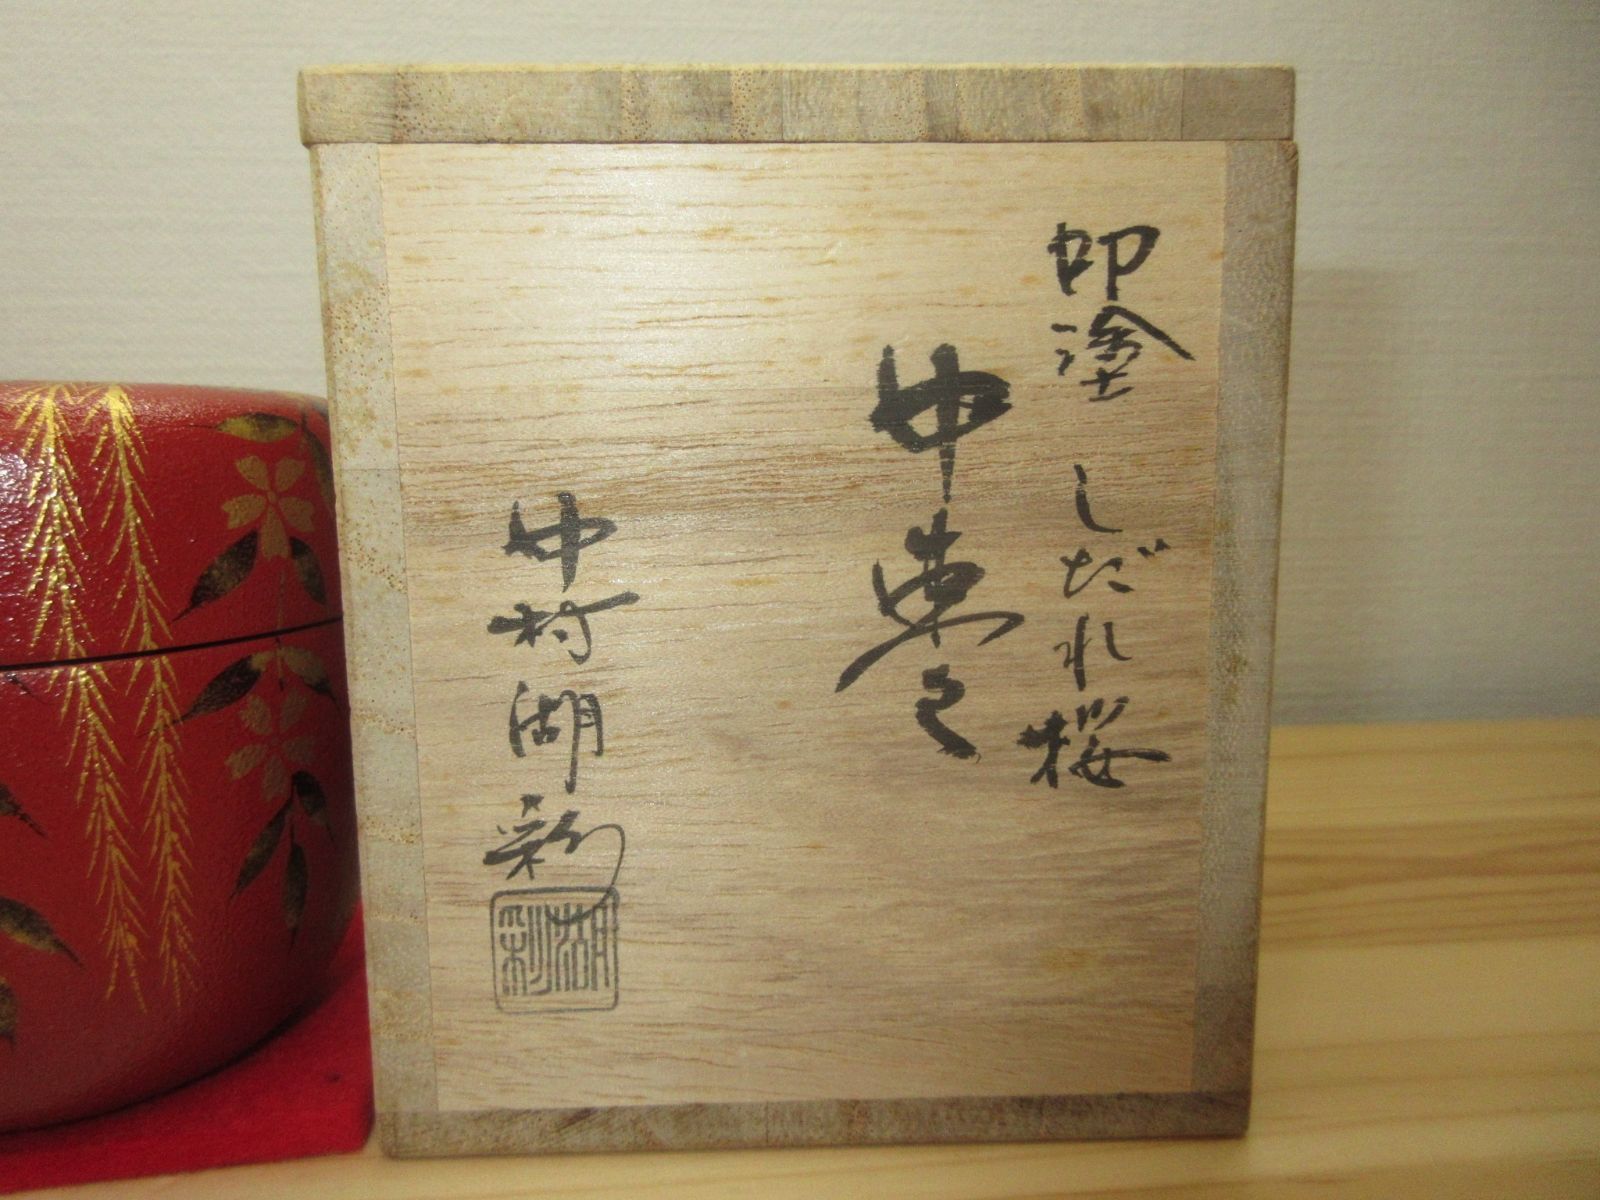 叩塗 しだれ桜
中棗
中村湖彩
湖彩